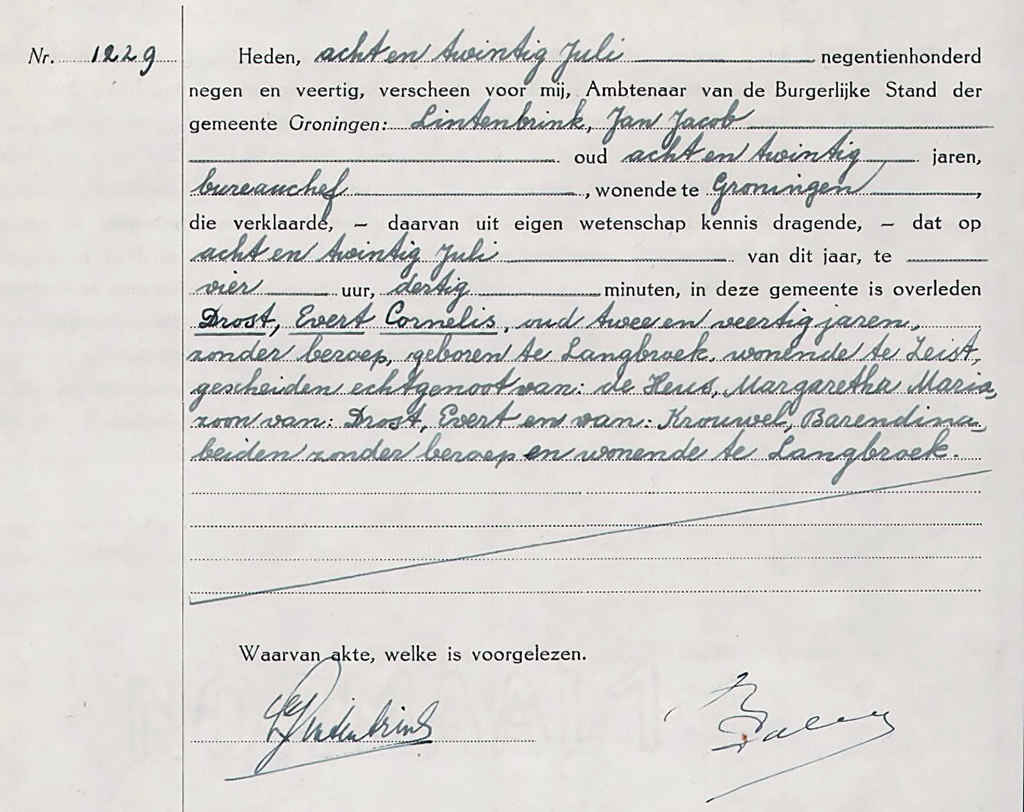 Nr. 1229
Heden, acht en twintig Juli negentienhonderd
negen en veertig, verscheen voor mij, Ambtenaar van de Burgerlijke Stand der
gemeente Groningen: Lintenbrink, Jan Jacob
oud acht en twintig jaren,
bureauchef, wonende te Groningen,
die verklaarde, – daarvan uit eigen wetenschap kennis dragende, – dat op
acht en twintig Juli van dit jaar, te
vier uur, dertig minuten, in deze gemeente is overleden
Drost, Evert Cornelis, oud twee en veertig jaren,
zonder beroep, geboren te Langbroek, wonende te Zeist,
gescheiden echtgenoot van: de Heus, Margaretha Maria,
zoon van: Drost, Evert en van: Krouwel, Barendina,
beiden zonder beroep en wonende te Langbroek.
Waarvan akte, welke is voorgelezen.